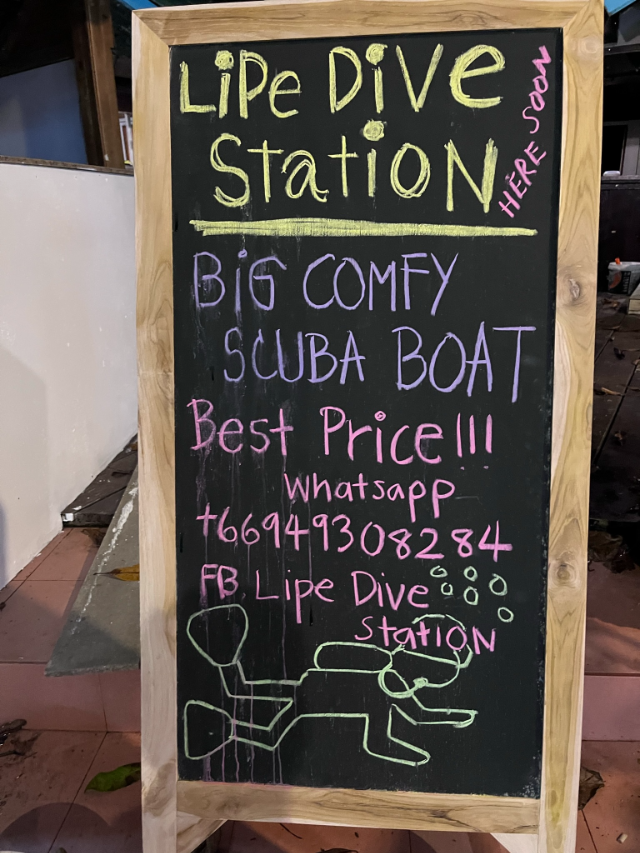 LiPe Dive
Station
HERE SOON
BiG COMFY
SCUBA BOAT
Best Price!!!
Whatsapp
+66949308284
FB Lipe Dive
Station